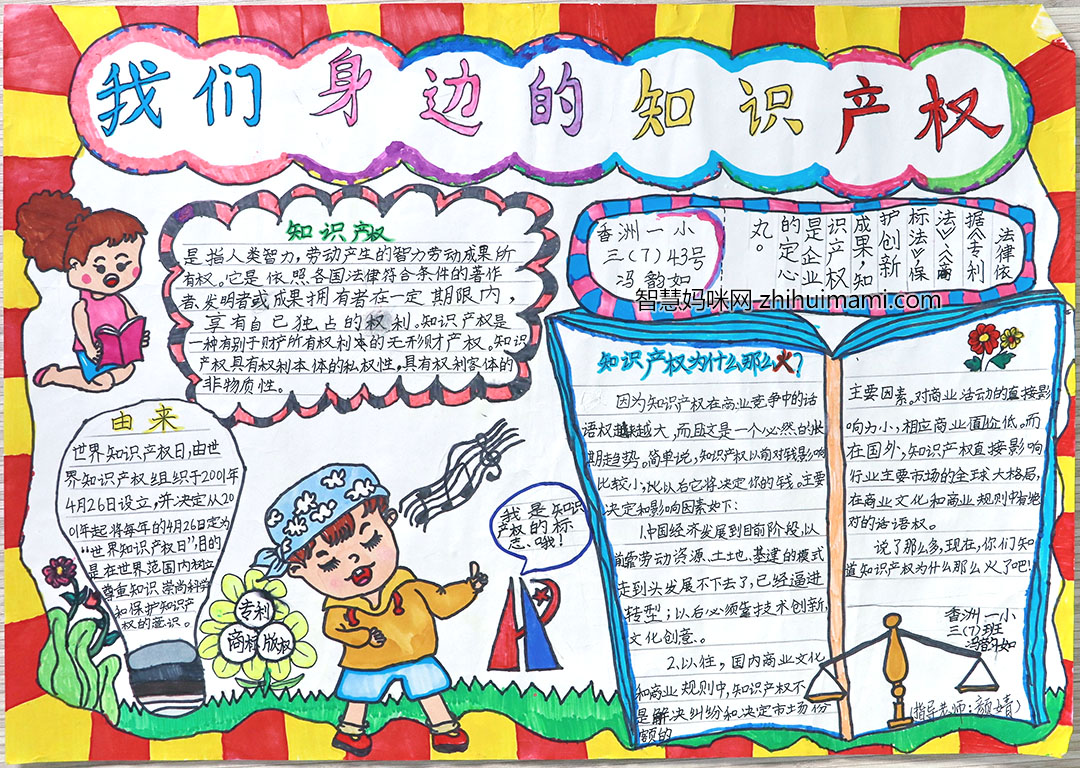 我们身边的知识产权
知识产权
是指人类智力,劳动产生的智力劳动成果所
有权。它是依照各国法律符合条件的著作
者、发明者或成果拥有者在一定期限内,
享有自己独占的权利。知识产权是
一种有别于财产所有权利本的无形财产权。知识
产权具有权利本体的私权性,具有权利客体的
非物质性。
香洲一小
三(7)43号
冯韵如
法律依
据《专利
法》《商
标法》保
护创新
成果,知
识产权
是企业
的定心
丸。
智慧妈咪网 zhihuimami.com
由来
世界知识产权日,由世
界知识产权组织于2001年
4月26日设立,并决定从20
01年起将每年的4月26日定为
“世界知识产权日”,目的
是在世界范围内树立
尊重知识、崇尚科学
和保护知识产
权的意识。
专利
商标
版权
我是知识
产权的标
志、哦!
知识产权为什么那么火?
因为知识产权在商业竞争中的话
语权越来越大,而且这是一个必然的长
期趋势。简单说,知识产权以前对钱影响
比较小,以后它将决定你的钱。主要
决定和影响因素如下:
1.中国经济发展到目前阶段,以
前靠劳动资源、土地、基建的模式
走到头发展不下去了,已经逼进
转型;以后必须靠技术创新,
文化创意。
2.以往,国内商业文化
和商业规则中,知识产权不
是解决纠纷和决定市场份
额的
主要因素。对商业活动的直接影
响力小,相应商业价值低。而
在国外,知识产权直接影响
行业主要市场的全球大格局,
在商业文化和商业规则中有绝
对的话语权。
说了那么多,现在,你们知
道知识产权为什么那么火了吧!
香洲一小
三(7)班
冯韵如
(指导老师:颜婧)